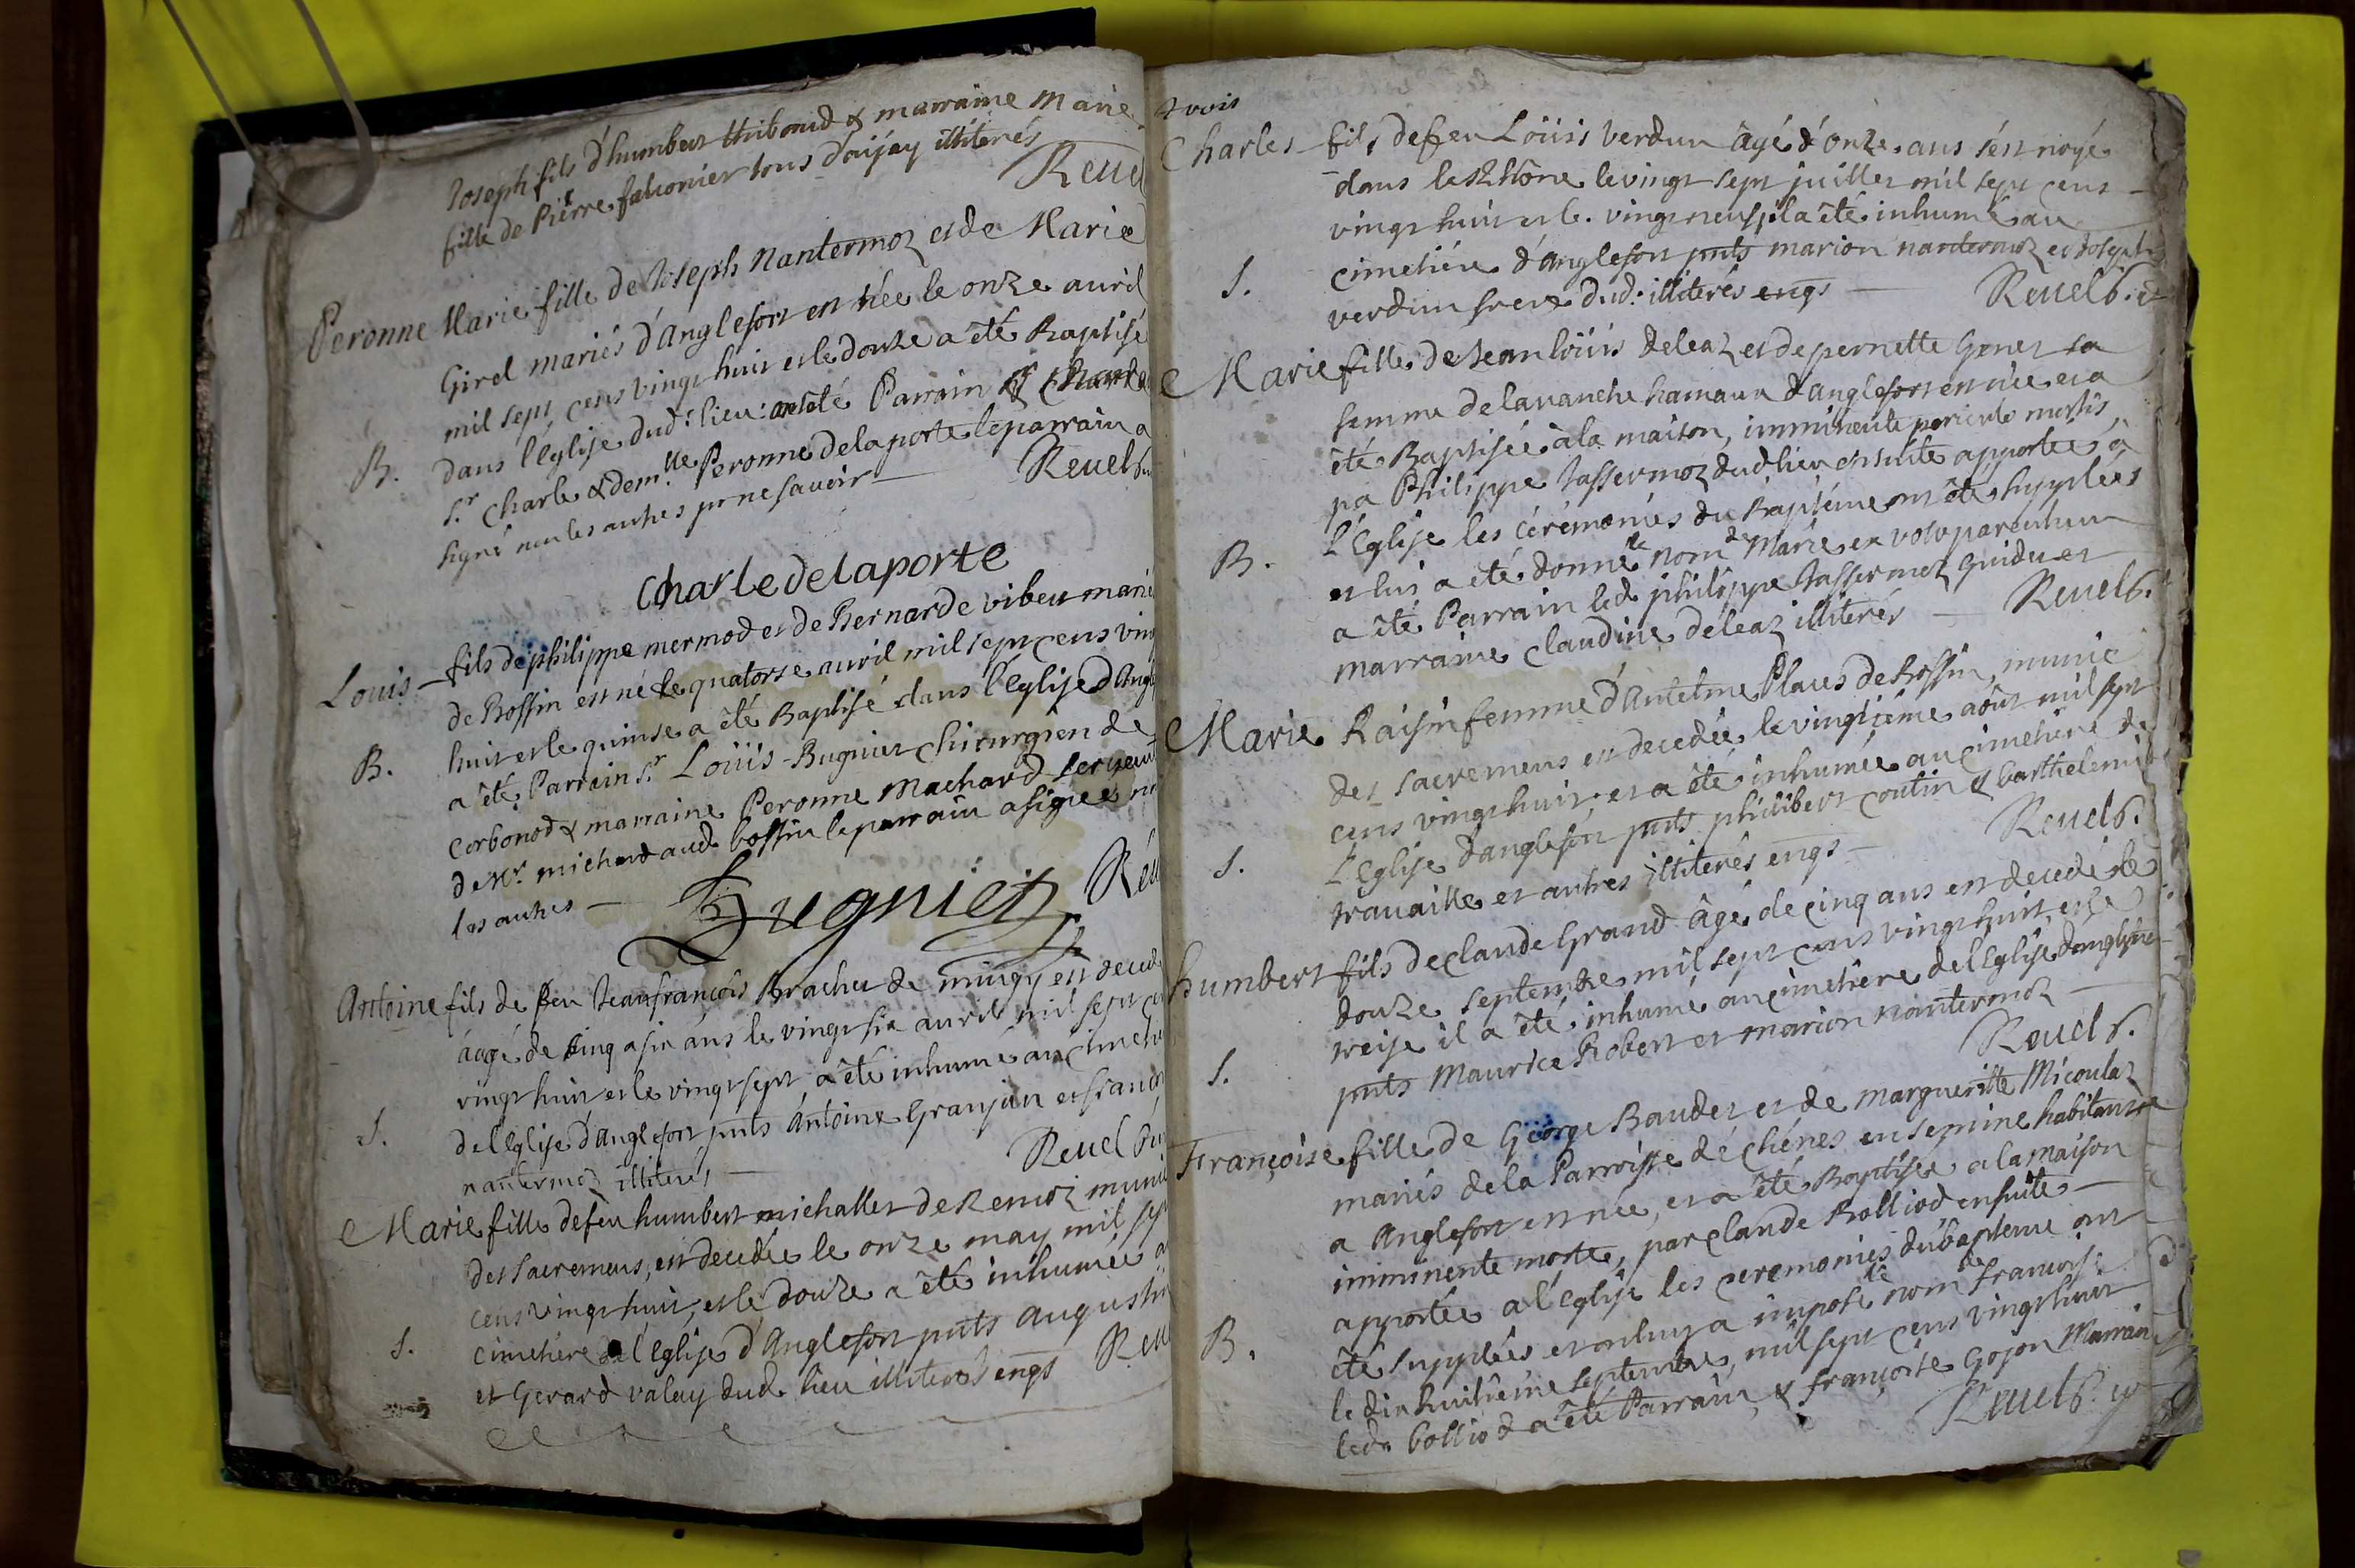 Joseph fils d'humbert thiboud & marraine Marie
fille de Pierre falconier tous d'oijay illiterés
Reuel
Peronne Marie fille de Joseph Nantermoz et de Marie
Girel mariés d'Anglefort est née le onze auril
mil sept cens vingt huit et le douze a été Baptisé
B. dans l'Eglise dud: lieu: a été Parrain
Sr. Charle & demlle Peronne delaporte le parrain a
signé non les autres pr ne sauoir Reuel
Charle delaporte
Louis fils de philippe mermod et de Bernarde vibert
de Boffin est né le quatorze auril mil sept cens
B. huit et le quinse a été Baptisé dans l'Eglise
a été Parrain Sr. Loüis Bugniet chirurgien de
corbonod & marraine Peronne Machard
de Mr. michaud aud. boffin le parrain a signé
les autres
Bugniet
Antoine fils de feu Jeanfrançois Brachet de mingy est
âgé de cinq a six ans le vingt six auril mil sept
vingt huit et le vingt sept a été inhumé au
S. de l'Eglise d'Anglefort pnts Antoine Granjan et
nantermoz illiterés Reuel
Marie fille de feu humbert michallet de Remoz
des sacremens, est decedée le onze may mil
cens vingt huit, et le douze a été inhumée
S. cimetière de l'Eglise d'Anglefort pnts
et Gerard valay dud. lieu illiterés enqs
trois
Charles fils de feu Loüis Verdun âgé d'onze ans s'est noyé
dans le Rhône le vingt sept juillet mil sept cens
vingt huit et le vingt neuf il a été inhumé au
S. cimetière d'Anglefort pnts marion nantermoz et Joseph
verdun frere dud: illiterés enqs Reuel
Marie fille de Jean loüis deleaz et de pernette Genet sa
femme de lauanche hamaux d'Anglefort est née et a
été Baptisée à la maison, imminente periculo mortis
pa Philippe Jassermoz dud lieu ensuite apportée à
L'Eglise les cérémonies du Baptéme ont été suppléés
B. et lui a été donné le nom de Marie ex voto parentum
a été Parrain led. philippe Jassermoz
marraine claudine deleaz illiterés Reuel
Marie Raisin femme d'Antelme Place de Boffin, munie
des sacremens est decedée le vingtième aôut mil sept
cens vingt huit, et a été inhumée au cimetière de
S. L'Eglise d'anglefort pnts philibert coutin & barthelemi
trauaille et autres illiterés enqs Reuel
humbert fils de claude Grand âgé de cinq ans est decedé le
douze septembre mil sept cens vingt huit, et le
treise il a été inhumé au cimetière de l'Eglise d'anglefort
S. pnts Maurice Robert et marion nantermoz
Reuel
Françoise fille de George Baudet et de marguerite Micoulaz
mariés de la Parroisse de Chénes en semine habitans
a Anglefort est née, et a été Baptisée a la maison
imminente morte, par claude Bolliod ensuite
apportée a l'Eglise les ceremonies du baptéme ont
B. été suppléés et on luy a imposé le nom de francoise
le dix huitième septembre, mil sept cens vingt huit
led. bolliod a été Parrain, & françoise Gojon Marrain
Reuel